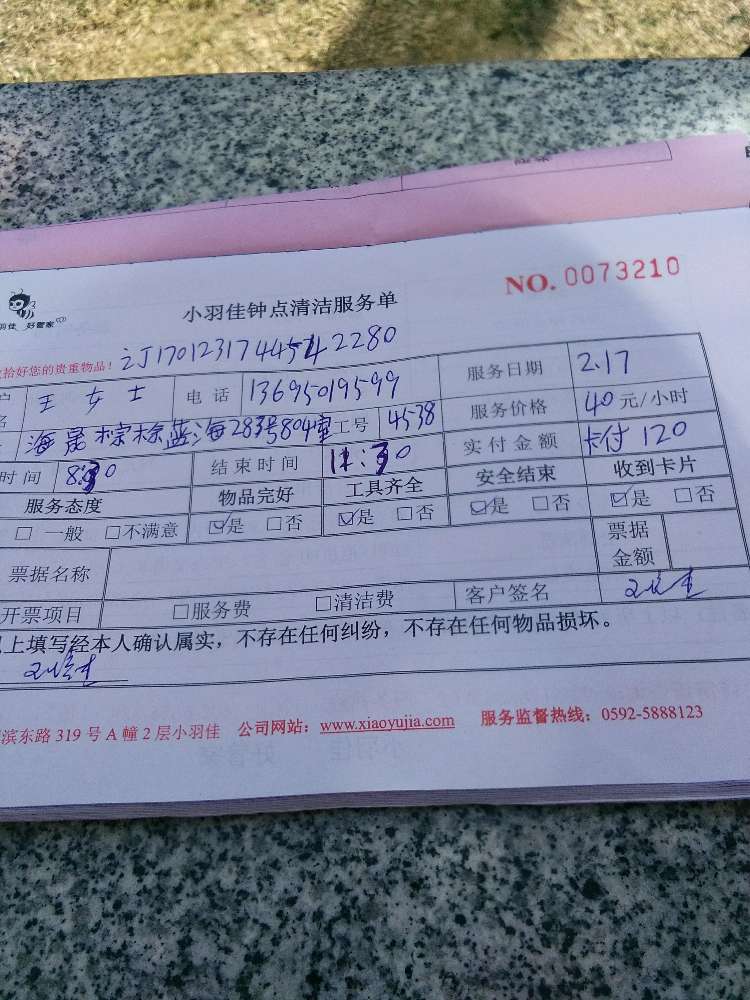 NO. 0073210
小羽佳钟点清洁服务单
好管家
拾好您的贵重物品！ 订J1701231744542280
王女士 电话 13695019599 服务日期 2.17
海晟棕榈蓝海283号804室 工号 4538 服务价格 40 元/小时
时间 8:30 结束时间 11:30 实付金额 卡付120
服务态度 物品完好 工具齐全 安全结束 收到卡片
□ 一般 □不满意 ☑是 □否 ☑是 □否 ☑是 □否 ☑是 □否
票据名称 票据金额
开票项目 □服务费 □清洁费 客户签名
上填写经本人确认属实，不存在任何纠纷，不存在任何物品损坏。
滨东路 319 号 A 幢 2 层小羽佳 公司网站：www.xiaoyujia.com 服务监督热线：0592-5888123